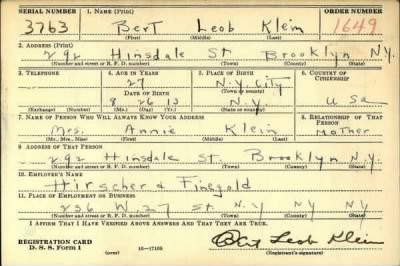 SERIAL NUMBER 1. NAME (Print) ORDER NUMBER
3763 Bert Leob Klein 1649
(First) (Middle) (Last)
2. ADDRESS (Print)
292 Hinsdale St Brooklyn NY.
(Number and street or R. F. D. number) (Town) (County) (State)
3. TELEPHONE 4. AGE IN YEARS 5. PLACE OF BIRTH 6. COUNTRY OF CITIZENSHIP
27 N.Y. City
DATE OF BIRTH (Town or county)
8 26 13 N.Y. USA
(Exchange) (Number) (Mo.) (Day) (Yr.) (State or country)
7. NAME OF PERSON WHO WILL ALWAYS KNOW YOUR ADDRESS 8. RELATIONSHIP OF THAT PERSON
Mrs. Annie Klein Mother
(Mr., Mrs., Miss) (First) (Middle) (Last)
9. ADDRESS OF THAT PERSON
292 Hinsdale St. Brooklyn N.Y.
(Number and street or R. F. D. number) (Town) (County) (State)
10. EMPLOYER'S NAME
Hirscher & Finegold
11. PLACE OF EMPLOYMENT OR BUSINESS
236 W. 27 St. NY NY NY
(Number and street or R. F. D. number) (Town) (County) (State)
I AFFIRM THAT I HAVE VERIFIED ABOVE ANSWERS AND THAT THEY ARE TRUE.
REGISTRATION CARD
D. S. S. Form 1 (over) 16-17105 Bert Leob Klein
(Registrant's signature)